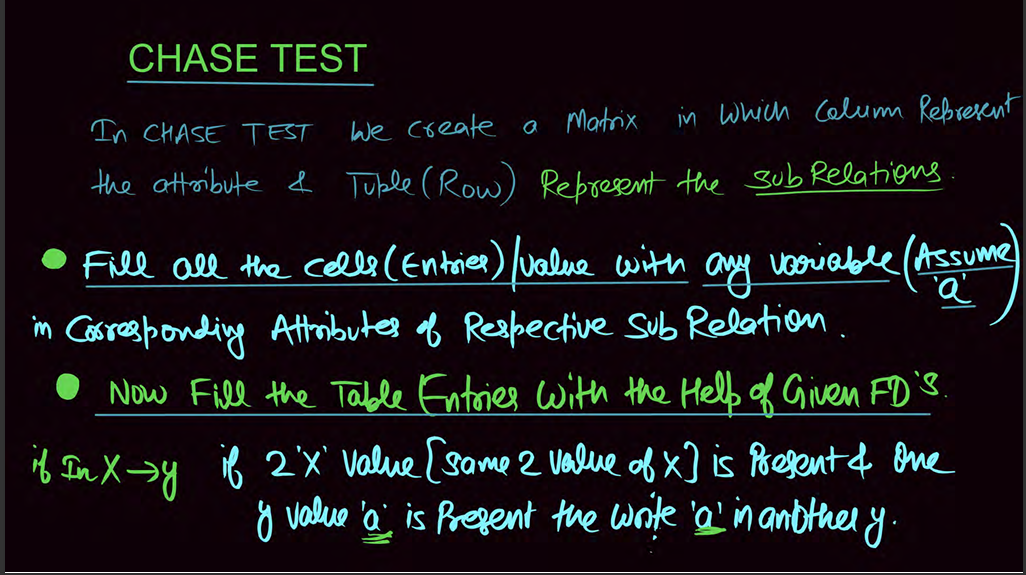 CHASE TEST
In CHASE TEST We create a Matrix in Which Column Represent
the attribute & Tuple (Row) Represent the SubRelations.
Fill all the cells (Entries) / Value with any variable (Assume 'a')
in Corresponding Attributes of Respective Sub Relation.
Now Fill the Table Entries With the Help of Given FD's.
if In X → y if 2 'X' Value [Same 2 Value of X] is Present & One
y value 'a' is Present the write 'a' in another y.